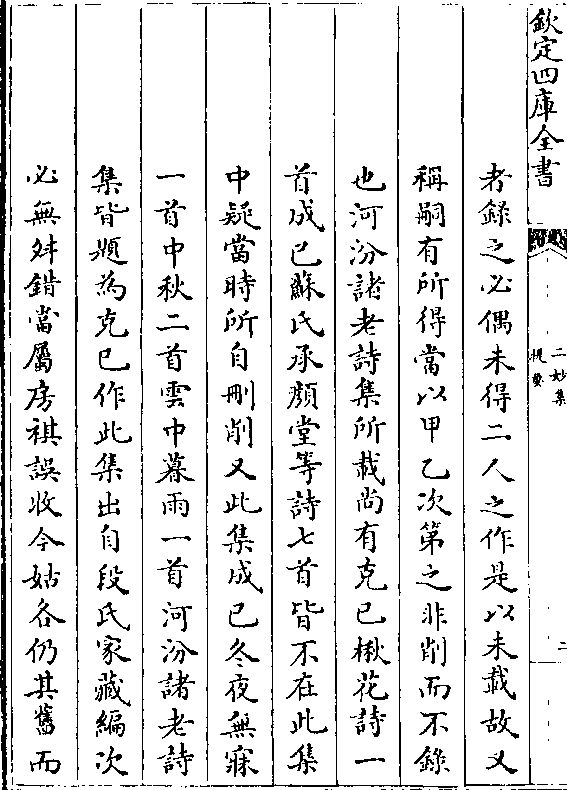 欽定四庫全書
二妙集
提要
二
者錄之必偶未得二人之作是以未載故又
稱嗣有所得當以甲乙次第之非削而不錄
也河汾諸老詩集所載尚有克已楸花詩一
首成已蘇氏承顔堂等詩七首皆不在此集
中疑當時所自刪削又此集成已冬夜無寐
一首中秋二首雲中暮雨一首河汾諸老詩
集皆題為克已作此集出自段氏家藏編次
必無舛錯當屬房祺誤收今姑各仍其舊而